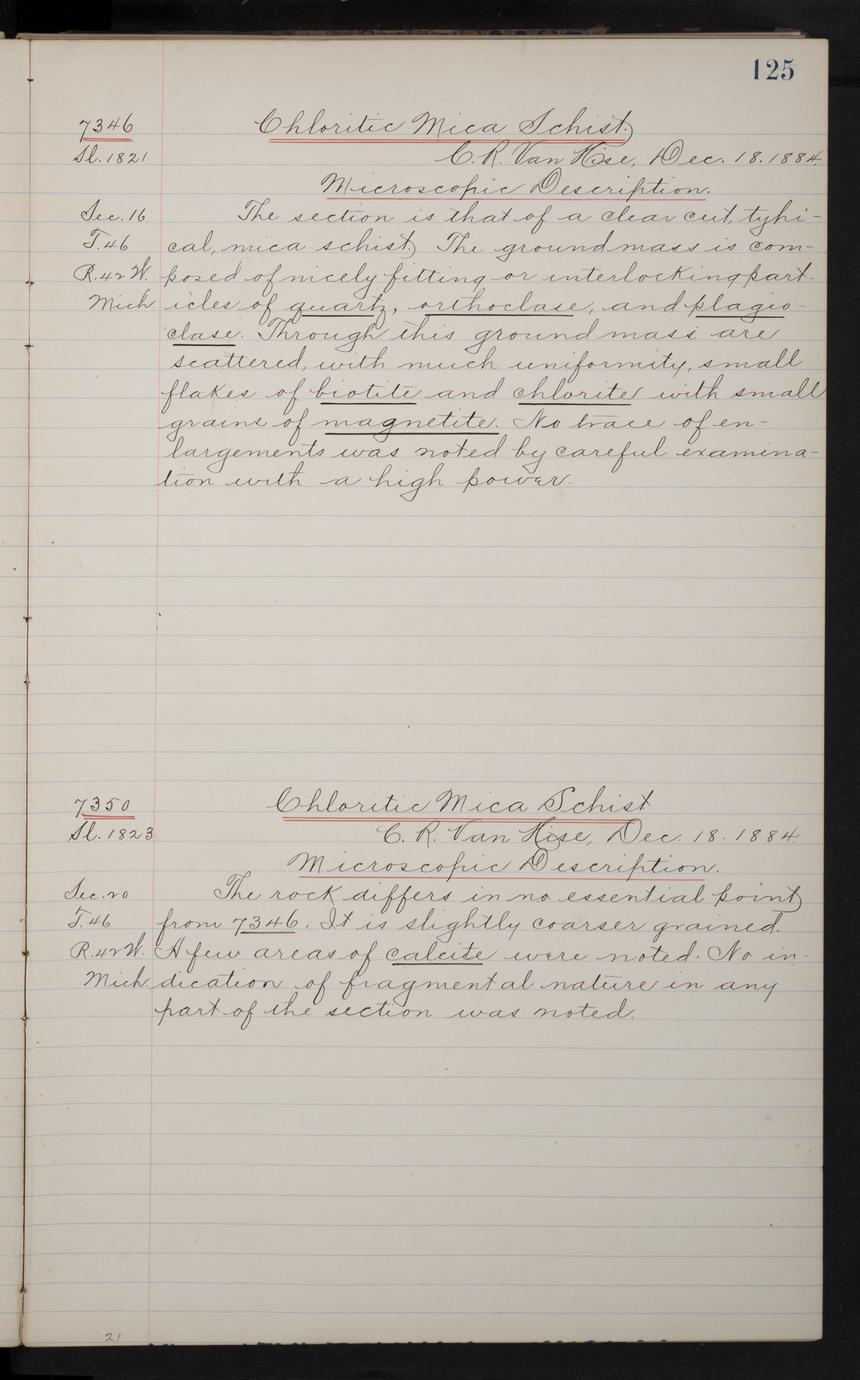 125
7346 Chloritic Mica Schist.
Sl. 1821 C. R. Van Hise, Dec. 18. 1884.
Microscopic Description.
Sec. 16 The section is that of a clear cut, typi-
T. 46 cal, mica-schist. The groundmass is com-
R. 42 W. posed of nicely fitting or interlocking part-
Mich icles of quartz, orthoclase, and plagio-
clase. Through this groundmass are
scattered, with much uniformity, small
flakes of biotite and chlorite with small
grains of magnetite. No trace of en-
largements was noted by careful examina-
tion with a high power.
7350 Chloritic Mica Schist
Sl. 1823 C. R. Van Hise, Dec. 18. 1884.
Microscopic Description.
Sec. 20 The rock differs in no essential point
T. 46 from 7346. It is slightly coarser grained.
R. 42 W. A few areas of calcite were noted. No in-
Mich. dication of fragmental nature in any
part of the section was noted.
21